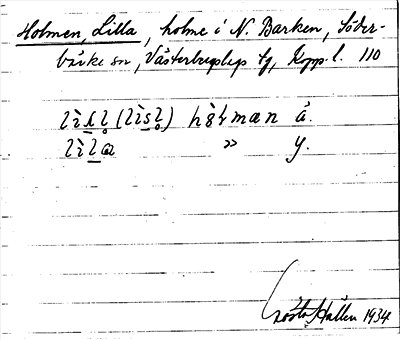 Holmen, Lilla, holme i N. Barken, Söder-
bärke sn, Västerbergslags tg, Kopp. l. 110
lìsl̥ (lìsl̥) hòlmæn ä.
lìla » y.
Gösta Hallén 1934